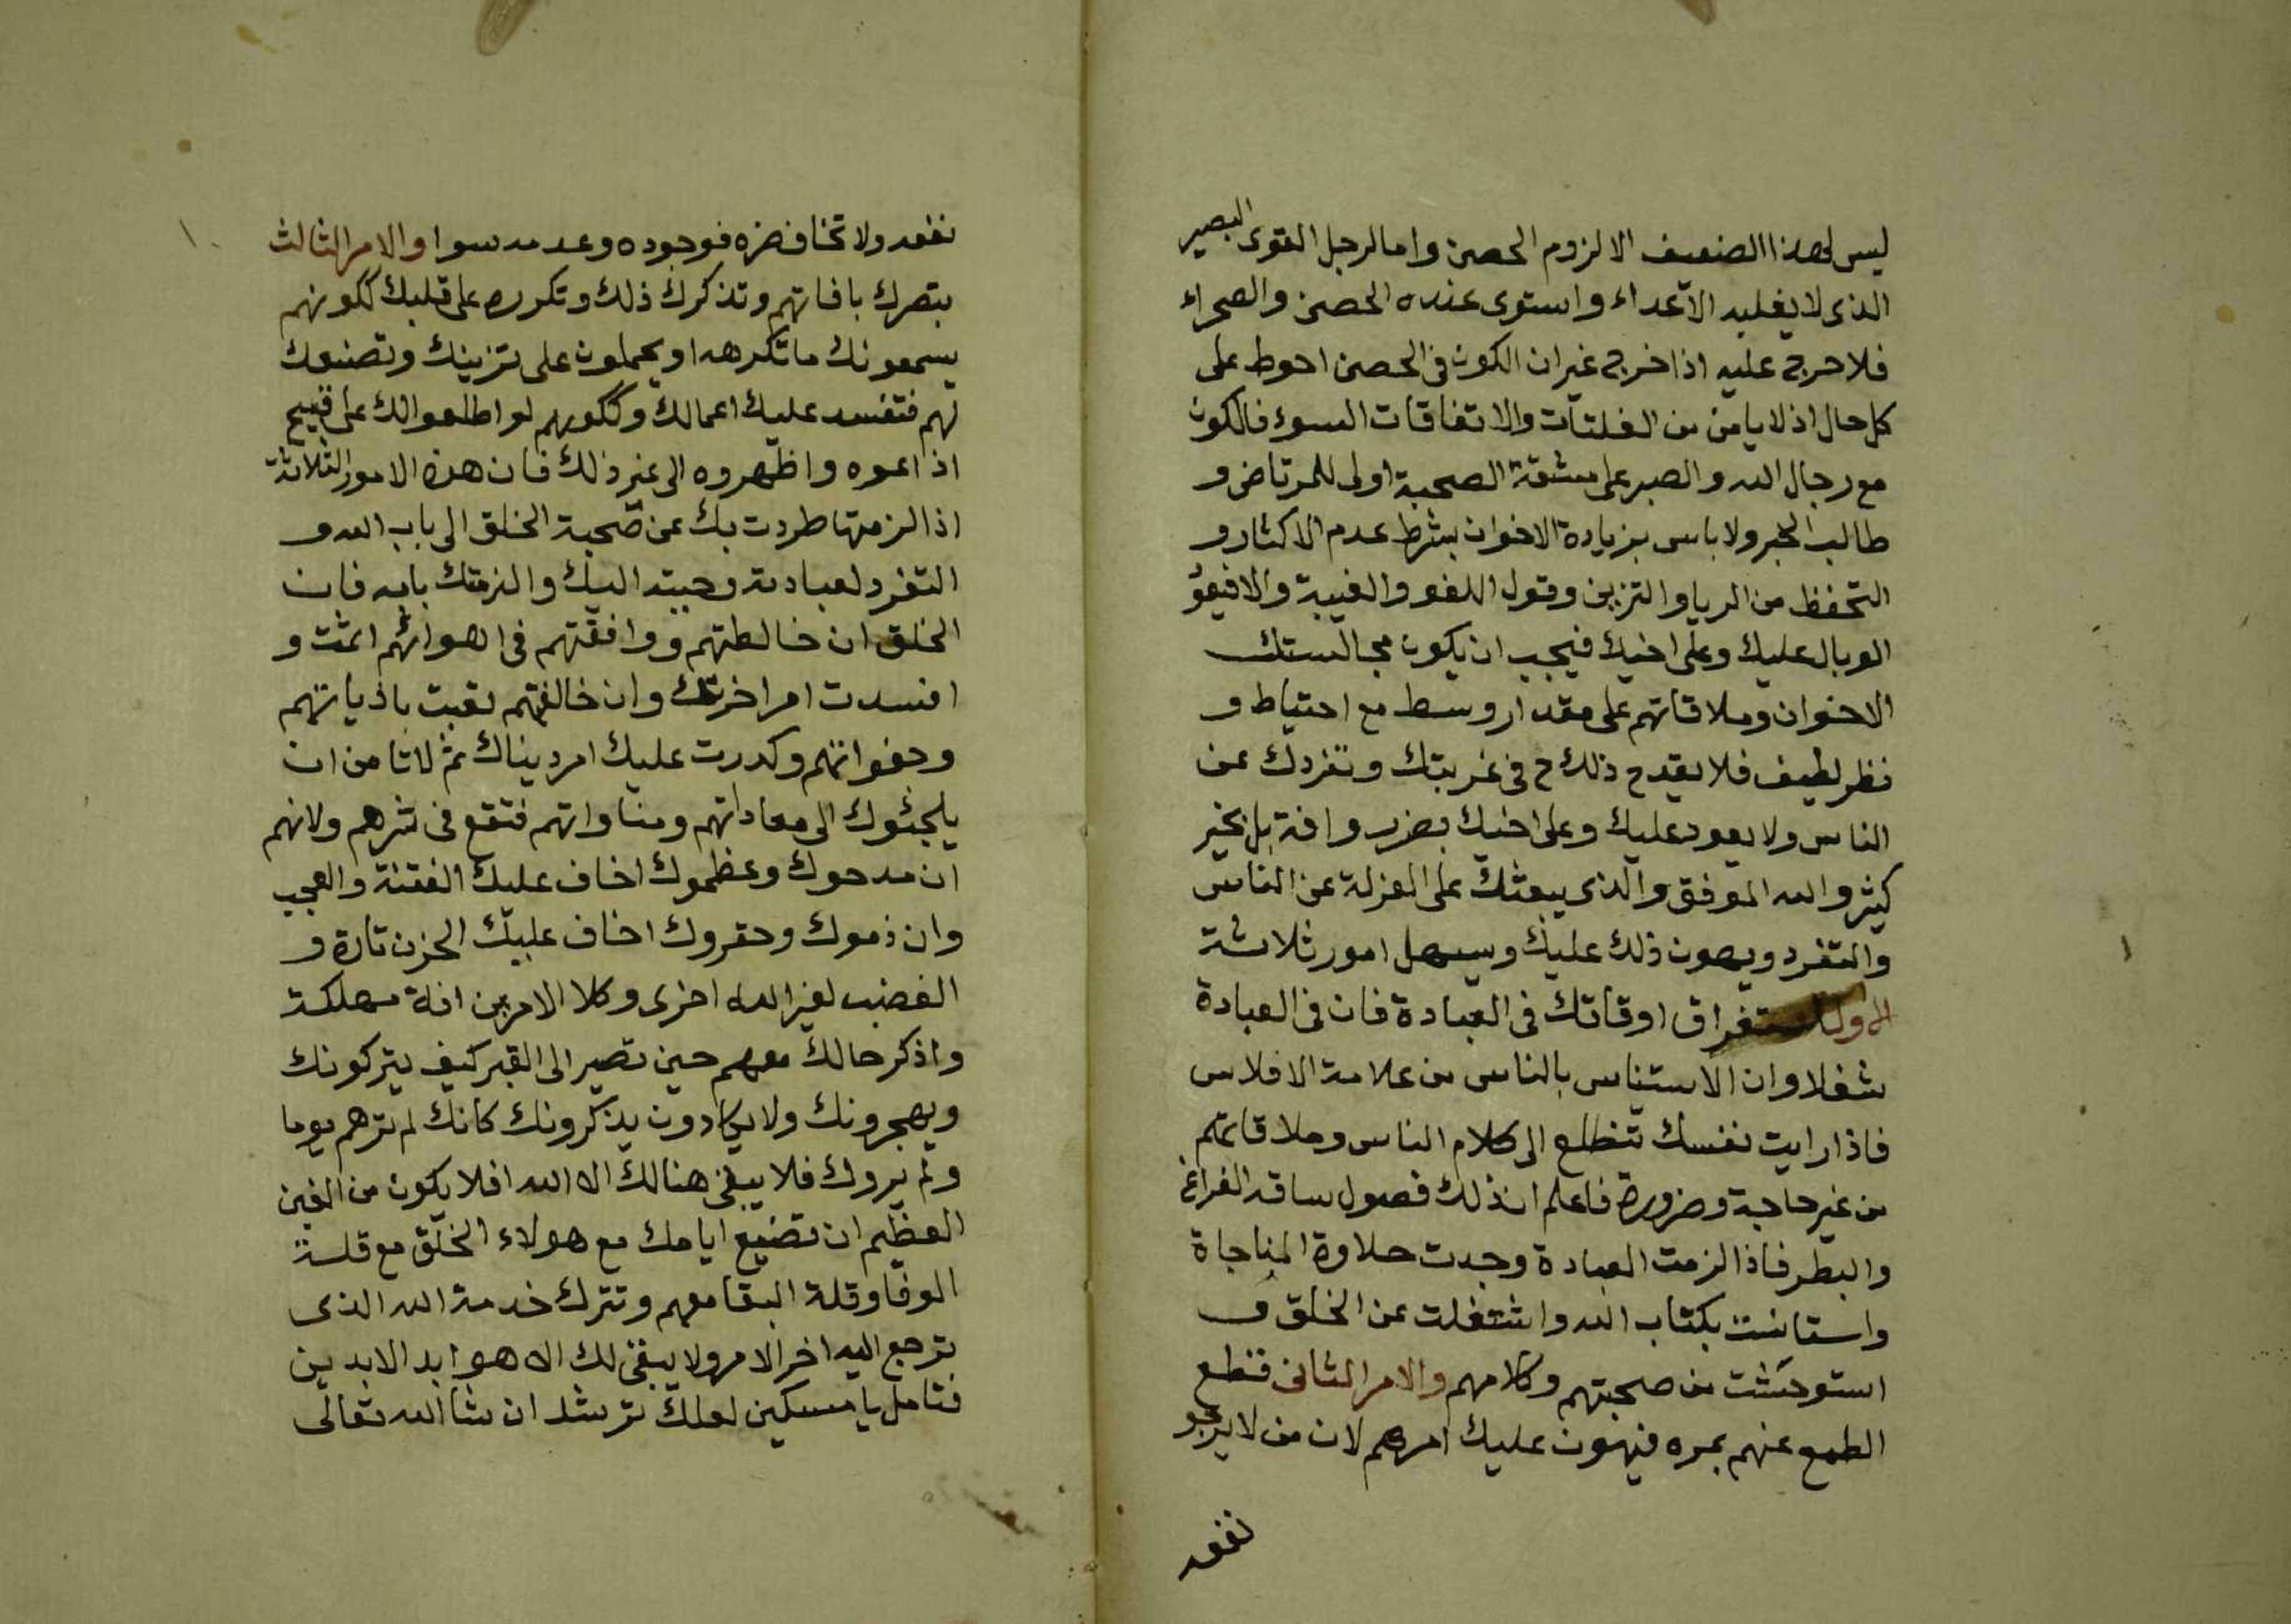 ليس لهذا الضعيف الا لزوم الحصن واما الرجل القوى البصير
الذى لا يغلبه الاعداء واستوى عنده الحصن والصحراء
فلا حرج عليه اذا خرج غير ان الكون فى الحصن احوط على
كل حال اذ لا يامن من الفلتات والاتفاقات السوء فالكون
مع رجال الله والصبر على مشقة الصحبة اولى للمرتاض و
طالب الخير ولا باس بزيارة الاخوان بشرط عدم الاكثار و
التحفظ من الريا والتزين وقول اللغو والغيبة والا فيعود
الوبال عليك وعلى اخيك فيجب ان يكون مجالستك
الاخوان وملاقاتهم على مقدار وسط مع احتياط و
نظر لطيف فلا يقدح ذلك ح فى غربتك وتفردك عن
الناس ولا يعود عليك وعلى اخيك بضرر وافة بل بخير
كثير والله الموفق والذى يبعثك على العزلة عن الناس
والتفرد ويهون ذلك عليك ويسهل امور ثلاثة
الاول استغراق اوقاتك فى العبادة فان فى العبادة
شغلا وان الاستيناس بالناس من علامة الافلاس
فاذا رايت نفسك تتطلع الى كلام الناس وملاقاتهم
من غير حاجة وضرورة فاعلم ان ذلك فضول ساقه الفراغ
والبطر فاذا الزمت العبادة وجدت حلاوة المناجاة
واستانست بكتاب الله واشتغلت عن الخلق و
استوحشت من صحبتهم وكلامهم والامر الثانى قطع
الطمع عنهم بمره فيهون عليك امرهم لان من لا يرجو
نفعه
نفعه ولا تخاف ضره فوجوده وعدمه سوا والامر الثالث
بتصرك بافاتهم وتذكرك ذلك وتكرره على قلبك ككونهم
يسمعونك ما تكرهه او يحملون على تزينك وتصنعك
لهم فتفسد عليك اعمالك وككونهم لو اطلعوا لك على قبيح
اذاعوه واظهروه الى غير ذلك فان هذه الامور الثلاثة
اذا لزمتها طردت بك عن صحبة الخلق الى باب الله و
التفرد لعبادته وحببته اليك والزمتك بابه فان
الخلق ان خالطتهم ووافقتهم فى اهوائهم اثمت و
افسدت امر اخرتك وان خالفتهم تعبت باذياتهم
وجفواتهم وكدرت عليك امر ديناك ثم لا تامن ان
يلجئوك الى معاداتهم ومناواتهم فتقع فى شرهم ولانهم
ان مدحوك وعظموك اخاف عليك الفتنة والعجب
وان ذموك وحقروك اخاف عليك الحزن تارة و
الغضب لغير الله اخرى وكلا الامرين افة مهلكة
واذكر حالك معهم حين تصير الى القبر كيف يتركونك
ويهجرونك ولا يكادون يذكرونك كانك لم ترهم يوما
ولم يروك فلا يبقى هنالك الا الله افلا يكون من الغبن
العظيم ان تضيع ايامك مع هولاء الخلق مع قلة
الوفا وقلة البقا معهم وتترك خدمة الله الذى
ترجع اليه اخر الامر ولا يبقى لك الا هو ابد الابدين
فتامل يا مسكين لعلك ترشد ان شا الله تعالى